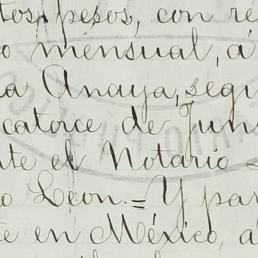 tos pesos, con re
o mensual, á
a Anaya, segu
catorce de Jun
te el Notario
o Leon.= Y par
te en México, a